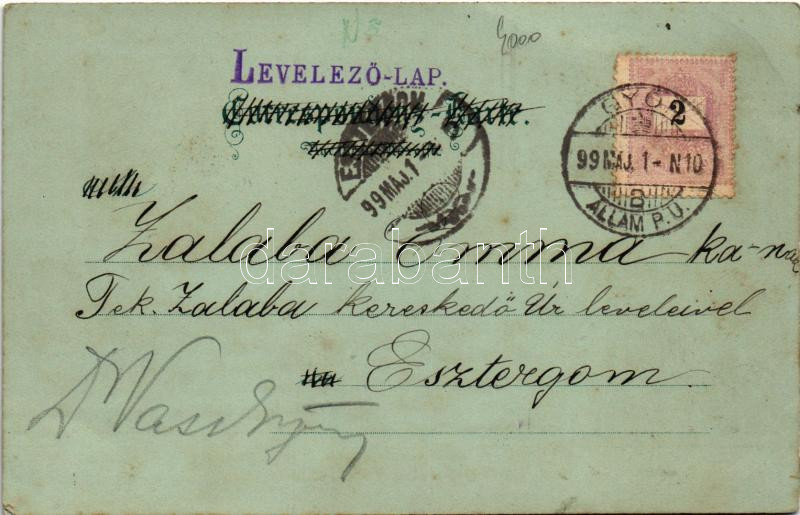 N 5
4000
LEVELEZŐ-LAP.
Correspondenz-Karte.
2
GYŐR
99 MÁJ. 1 - N10
B
ÁLLAM P.U.
ESZTERGOM
99 MÁJ. 1
Zalaba Emma ka-nak
Tek. Zalaba kereskedő Úr leveleivel
Esztergom.
darabanth